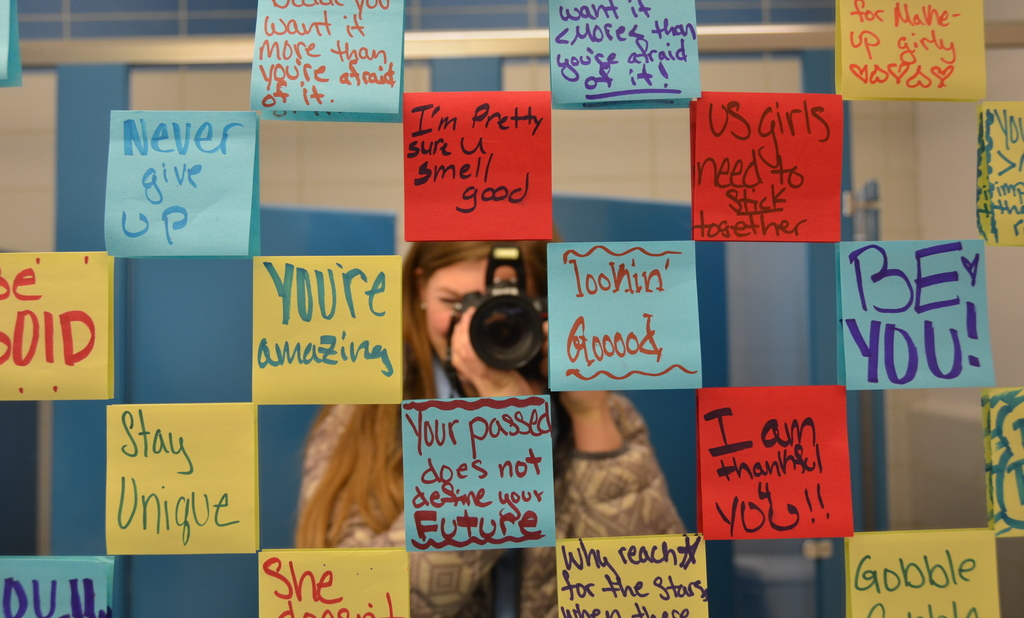 want it
more than
you're afraid
of it.
want it
<more< than
you're afraid
of it!
for Make-
up girly
Never
give
up
I'm Pretty
sure u
smell
good
US girls
need to
Stick
together
You
Be
You're
amazing
lookin'
Goood
BE
YOU!
Stay
Unique
Your passed
does not
define your
Future
I am
thankful
you!!
She
doesn't
Why reach
for the stars,
when there
Gobble
Gobble